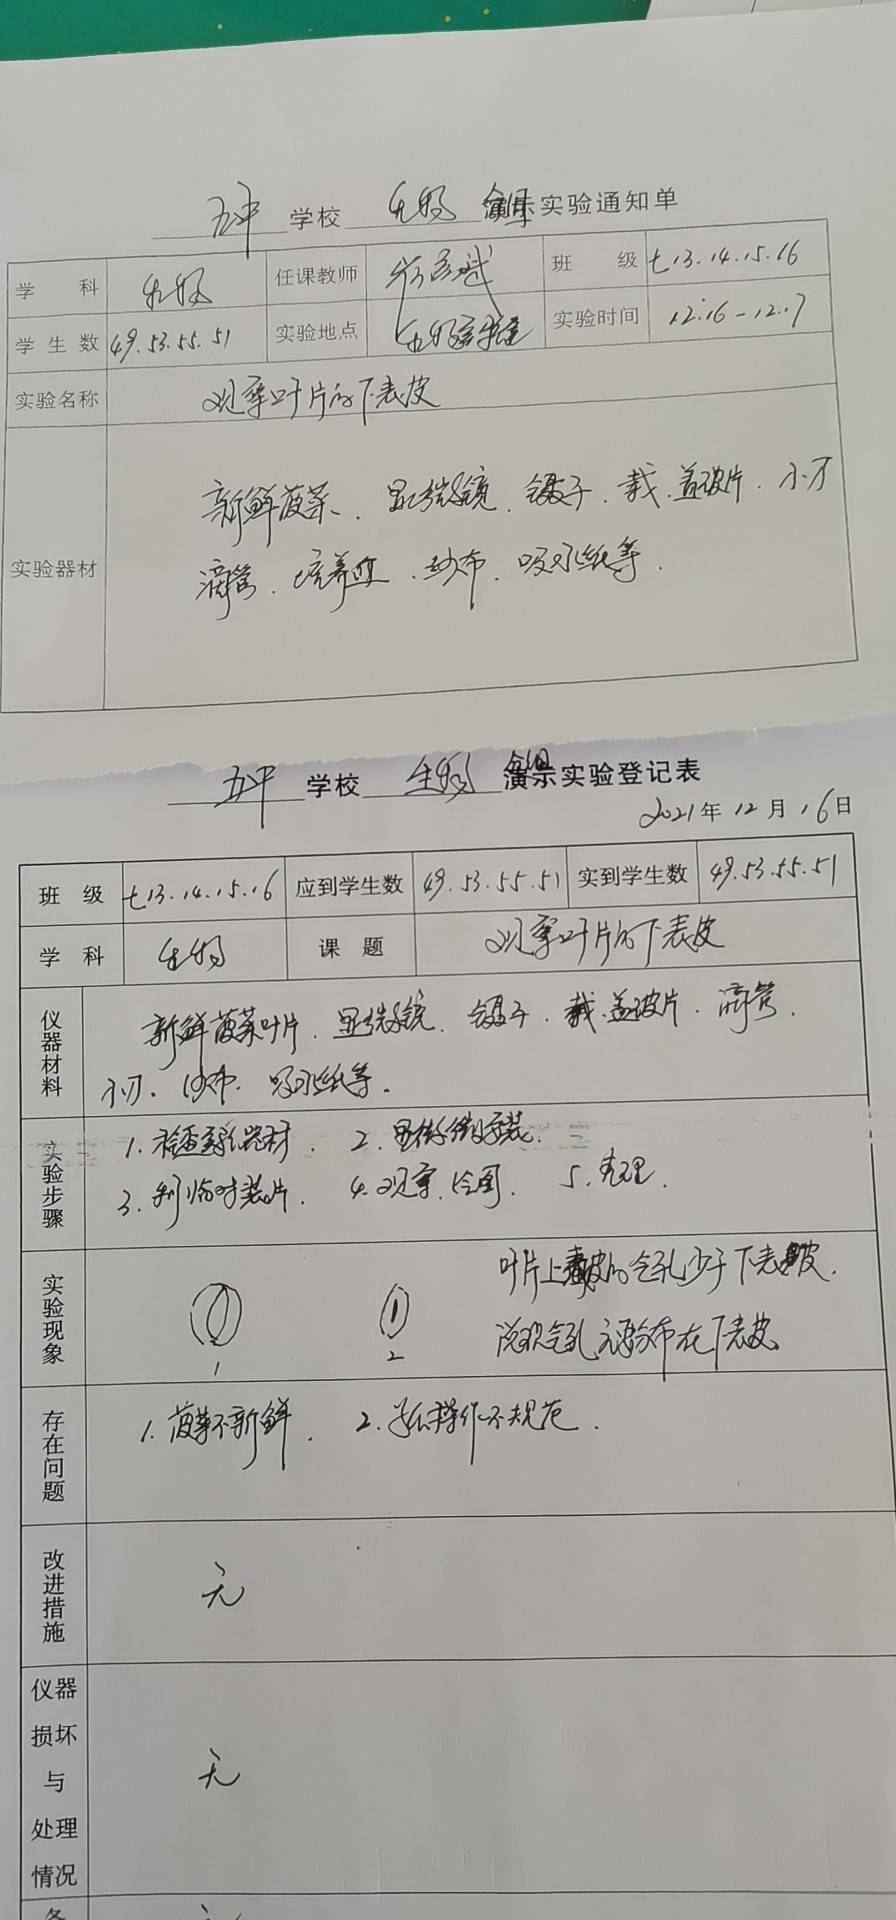 五中 学校 生物 分组 实验通知单
学 科 生物 任课教师 班 级 七13.14.15.16
学 生 数 49.53.55.51 实验地点 生物实验室 实验时间 12.16-12.17
实验名称 观察叶片的下表皮
实验器材 新鲜菠菜、显微镜、镊子、载、盖玻片、小刀
滴管、培养皿、纱布、吸水纸等.
学校 生物 分组 演示实验登记表
2021年12月16日
班 级 七13.14.15.16 应到学生数 49.53.55.51 实到学生数 49.53.55.51
学 科 生物 课 题 观察叶片的下表皮
仪器材料 新鲜菠菜叶片、显微镜、镊子、载、盖玻片、滴管、
小刀、纱布、吸水纸等.
实验步骤 1.检查实验器材. 2.显微镜安装.
3.制临时装片. 4.观察、绘图. 5.清理.
实验现象 叶片上表皮的气孔少于下表皮.
说明气孔主要分布在下表皮
1 2
存在问题 1.菠菜不新鲜. 2.学生操作不规范.
改进措施 无
仪器
损坏
与
处理
情况 无